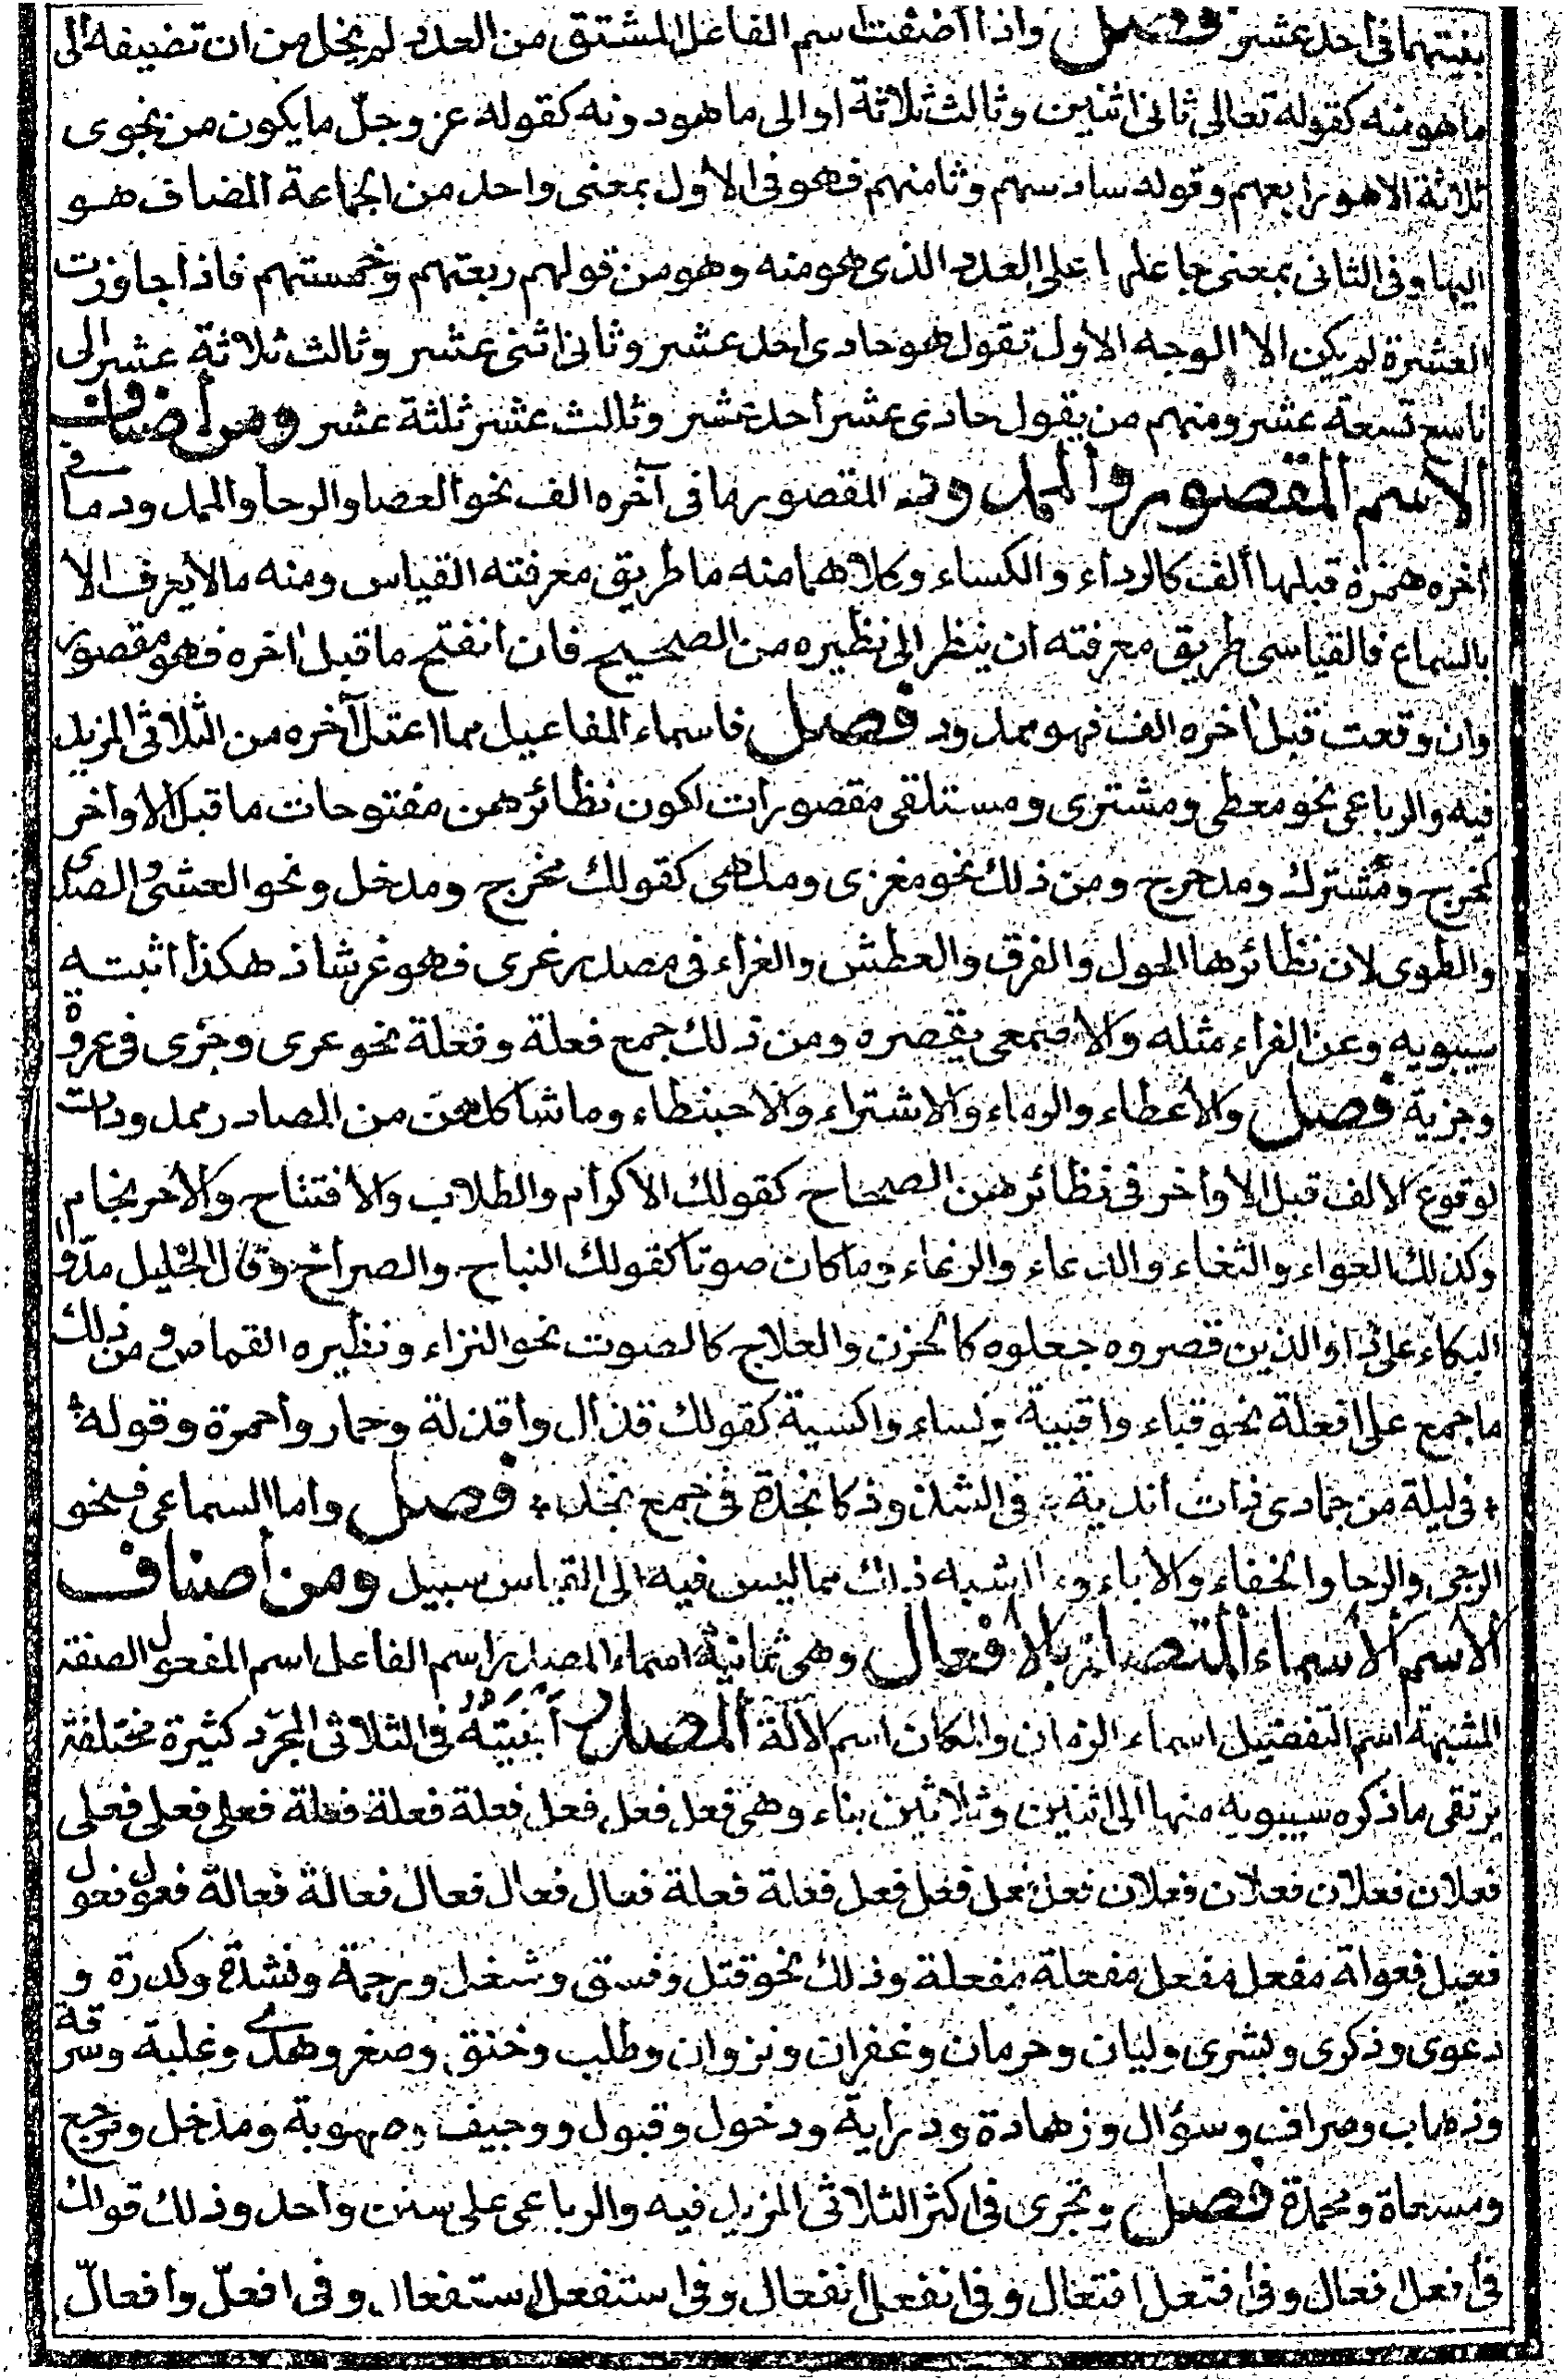 بنيتهما في احد عشر فصل واذا اضفت اسم الفاعل المشتق من العدد لم يخل من ان تضيفه الى
ما هو منه كقوله تعالى ثاني اثنين وثالث ثلاثة او الى ما هو دونه كقوله عز وجل ما يكون من نجوى
ثلاثة الا هو رابعهم وقوله سادسهم وثامنهم فهو في الاول بمعنى واحد من الجماعة المضاف هو
اليها وفي الثاني بمعنى جاعلها على العدد الذي هو منه وهو من قولهم ربعتهم وخمستهم فاذا جاوزت
العشرة لم يكن الا الوجه الاول تقول هو حادي احد عشر وثاني اثني عشر وثالث ثلاثة عشر الى
تاسع تسعة عشر ومنهم من يقول حادي عشر احد عشر وثالث عشر ثلثة عشر ومن أصناف
الاسم المقصور والممدود فالمقصور ما في آخره الف نحو العصا والرحا والممدود ما في
اخره همزة قبلها ألف كالرداء والكساء وكلاهما منه ما طريق معرفته القياس ومنه ما لا يعرف الا
بالسماع فالقياسي طريق معرفته ان ينظر الى نظيره من الصحيح فان انفتح ما قبل اخره فهو مقصور
وان وقعت قبل اخره الف فهو ممدود فصل فاسماء المفاعيل مما اعتل آخره من الثلاثي المزيد
فيه والرباعي نحو معطى ومشترى ومستلقى مقصورات لكون نظائرهن مفتوحات ما قبل الاواخر
كمخرج ومشترك ومدحرج ومن ذلك نحو مغزى وملهى كقولك مخرج ومدخل ونحو العشى والصدى
والطوى لان نظائرها الحول والفرق والعطش والغراء في مصدر غرى فهو غر شاذ هكذا اثبته
سيبويه وعن الفراء مثله والاصمعي يقصره ومن ذلك جمع فعلة وفعلة نحو عرى وجزى في عروة
وجزية فصل والأعطاء والرماء والاشتراء والاحبنطاء وما شاكلهن من المصادر ممدودات
لوقوع الالف قبل الاواخر في نظائرهن الصحاح كقولك الاكرام والطلاب والأفتتاح والأحرنجام
وكذلك العواء والثغاء والدعاء والرغاء وما كان صوتا كقولك النباح والصراخ وقال الخليل مدوا
البكاء على ذا والذين قصروه جعلوه كالحزن والعلاج كالصوت نحو النزاء ونظيره القماص ومن ذلك
ما جمع على افعلة نحو قباء واقبية وكساء واكسية كقولك قذال وأقذلة وحمار وأحمرة وقوله
في ليلة من جمادى ذات اندية في الشذوذ كانجدة في جمع نجد فصل واما السماعي فنحو
الرجى والرحا والخفاء والاباء وما اشبه ذلك مما ليس فيه الى القياس سبيل ومن أصناف
الاسم الأسماء المتصلة بالأفعال وهي ثمانية اسماء المصدر اسم الفاعل اسم المفعول الصفة
المشبهة اسم التفضيل اسماء الزمان والمكان اسم الآلة المصدر أبنيته في الثلاثي المجرد كثيرة مختلفة
يرتقي ما ذكره سيبويه منها الى اثنين وثلاثين بناء وهي فعل فعل فعل فعلة فعلة فعلة فعلى فعلى فعلى
فعلان فعلان فعلان فعلان فعل فعل فعل فعل فعلة فعلة فعال فعال فعال فعالة فعالة فعول فعول
فعيل فعولة مفعل مفعل مفعلة مفعلة وذلك نحو قتل وفسق وشغل ورحمة ونشدة وكدرة و
دعوى وذكرى وبشرى وليان وحرمان وغفران ونزوان وطلب وخنق وصغر وهدى وغلبة وسرقة
وذهاب وصراف وسؤال وزهادة ودراية ودخول وقبول ووجيف وصهوبة ومدخل ومرجع
ومسعاة ومحمدة فصل وتجرى في اكثر الثلاثي المزيد فيه والرباعي على سنن واحد وذلك قولك
في أفعل افعال وفي افتعل افتعال وفي انفعل انفعال وفي استفعل استفعال وفي افعلّ وافعالّ